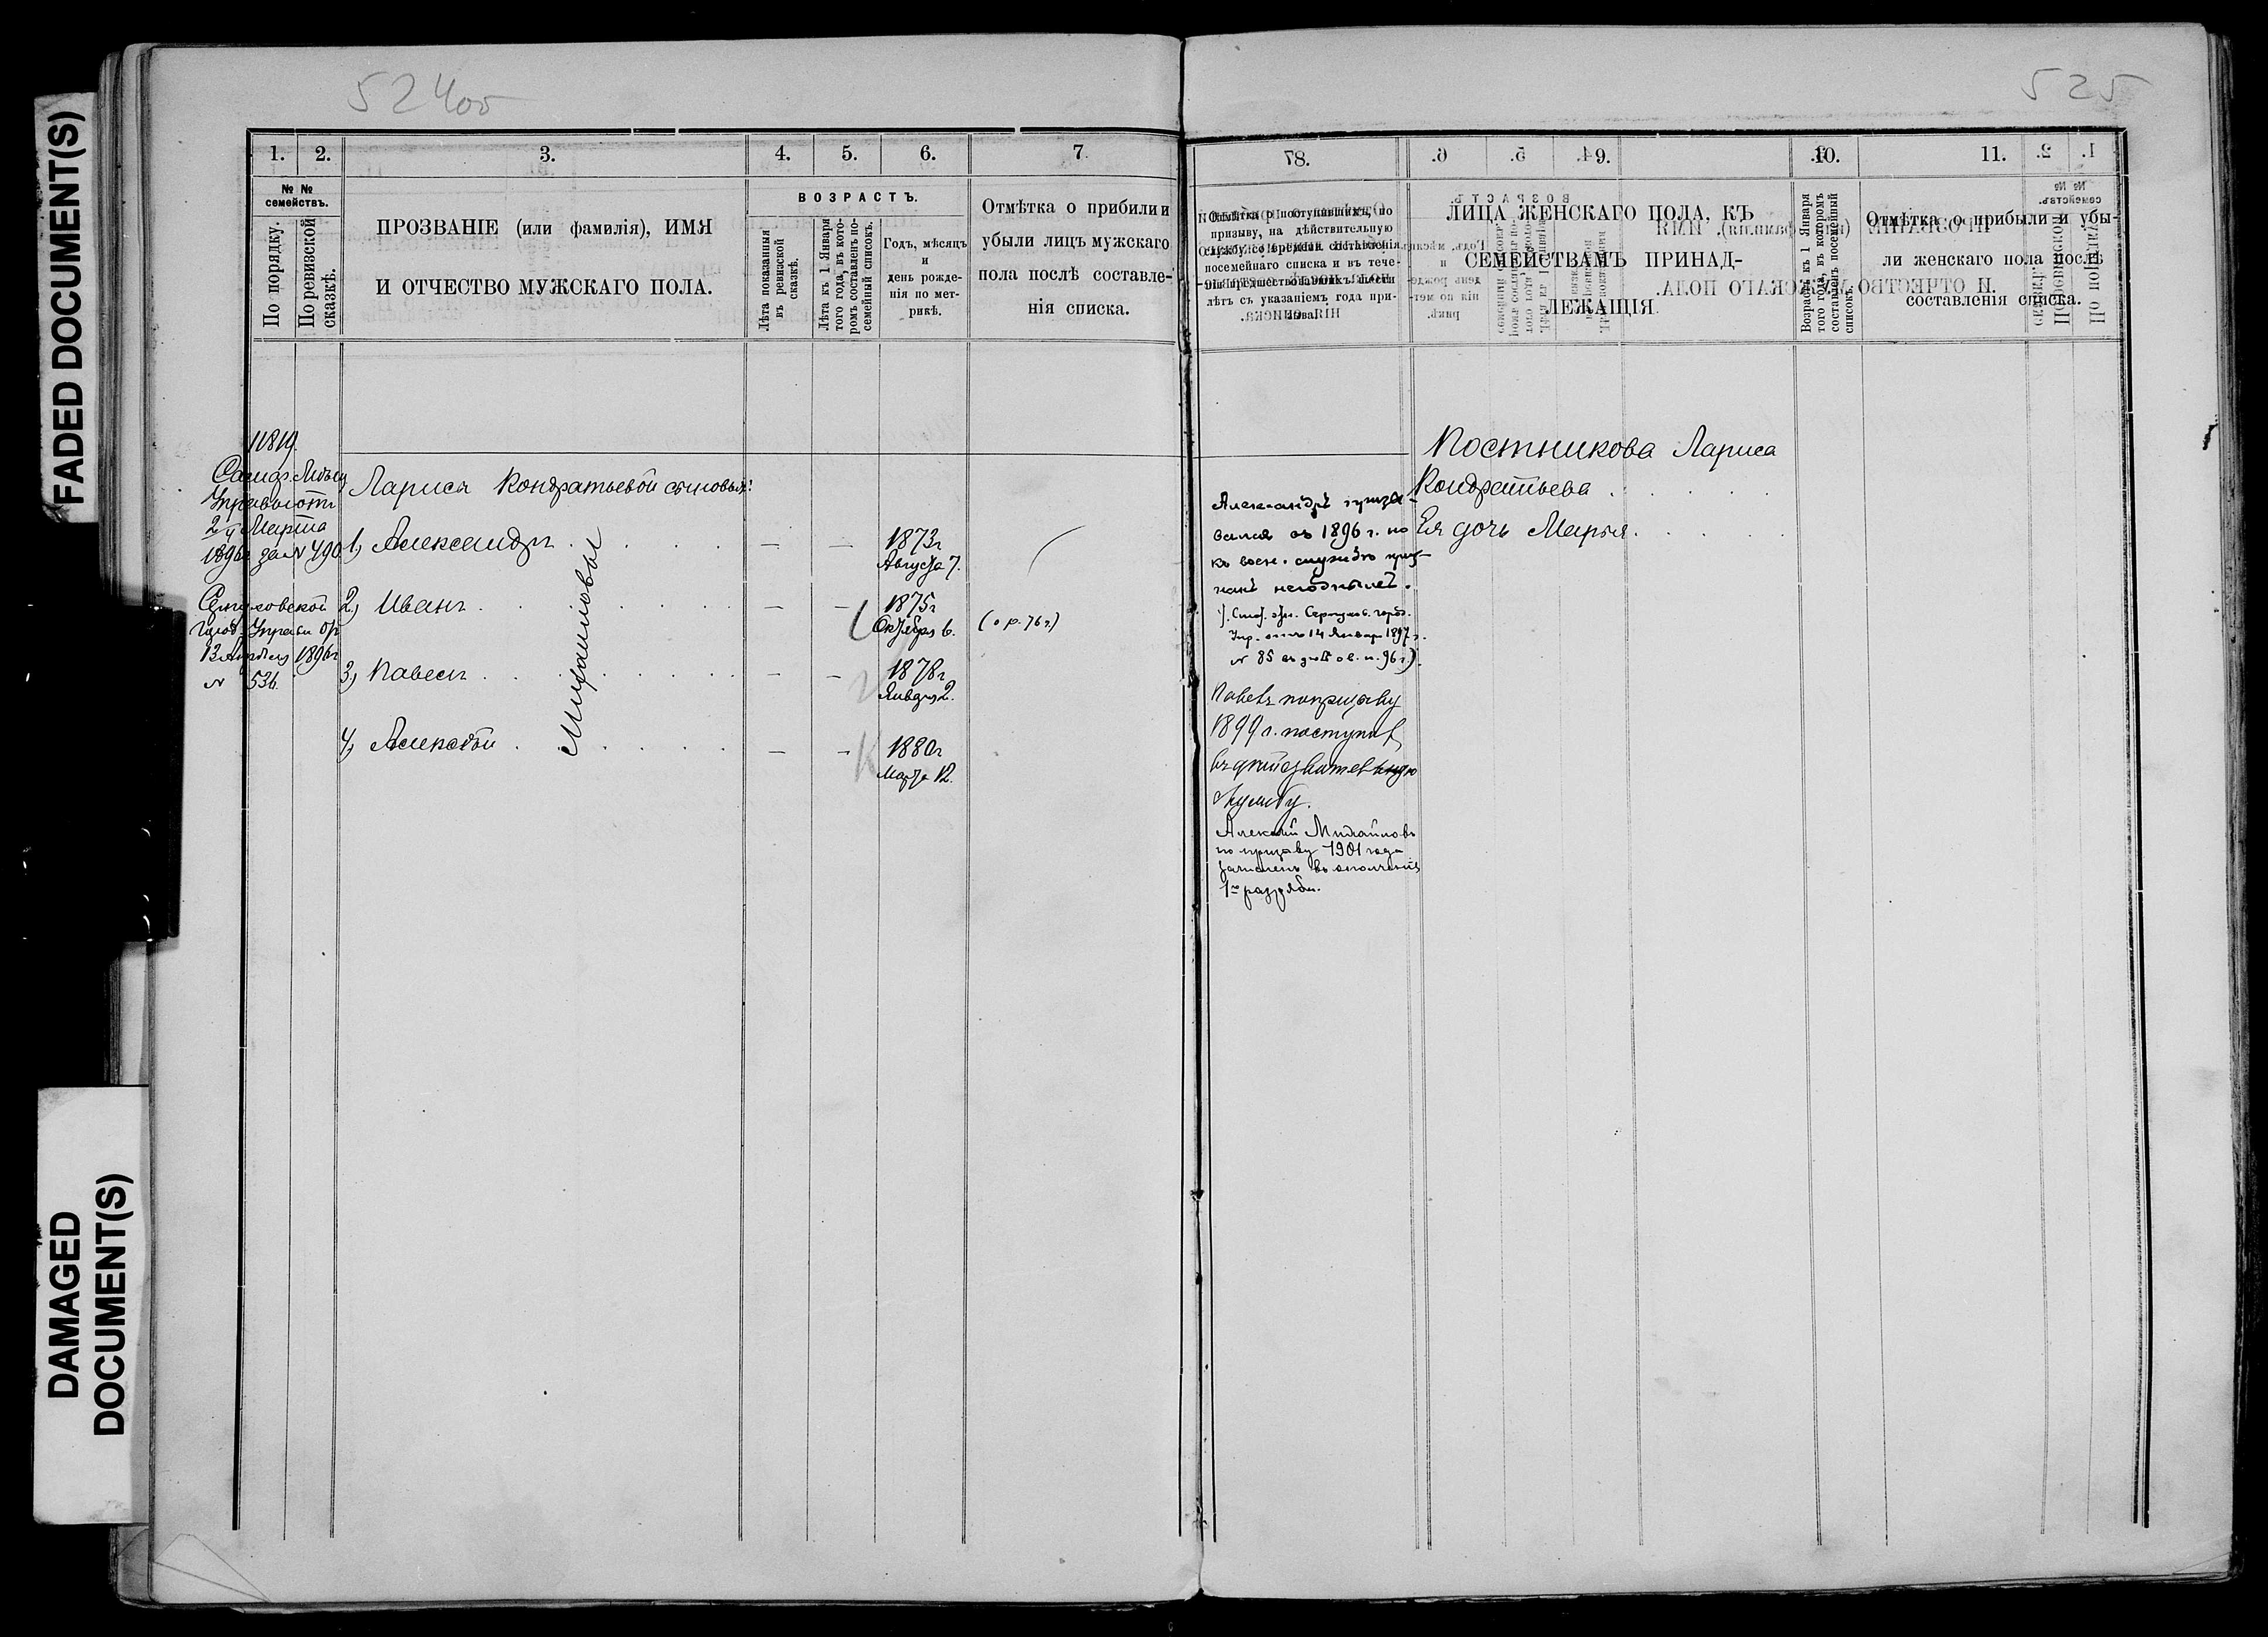 FADED DOCUMENT(S)
DAMAGED
DOCUMENT(S)
524об
1.
2.
3.
4.
5.
6.
7
№ №
семействъ.
По порядку.
По ревизской
сказкѣ.
ПРОЗВАНІЕ (или фамилія), ИМЯ
И ОТЧЕСТВО МУЖСКАГО ПОЛА.
ВОЗРАСТЪ.
Лѣта показанныя
въ ревизской
сказкѣ.
Лѣта къ 1 Января
того года, въ кото-
ромъ составленъ по-
семейный списокъ.
Годъ, мѣсяцъ
и
день рожде-
нія по мет-
рикѣ.
Отмѣтка о прибыли и
убыли лицъ мужскаго
пола послѣ составле-
нія списка.
2 Марта
1896г за № 490
Серпуховской
Город. Управы от
13 1896г
№ 536.
Лариса Кондратьевой сыновья:
1, Александръ
1873г
Августа 7.
2, Иванъ
1875г
Октября 6.
(о р. 76 г.)
3, Павелъ
1878г
Января 2.
4, Алексѣй
1880г
Марта 12.
Михайловы
525
8.
9.
10.
11.
Отмѣтка о поступившихъ, по
призыву, на дѣйствительную
службу со времени составленія
посемейнаго списка и въ тече-
ніи предшествовавшихъ шести
лѣтъ съ указаніемъ года при-
зыва.
ЛИЦА ЖЕНСКАГО ПОЛА, КЪ
СЕМЕЙСТВАМЪ ПРИНАД-
ЛЕЖАЩІЯ.
Возрастъ къ 1 Января
того года, въ которомъ
составленъ посемейный
списокъ.
Отмѣтка о прибыли и убы-
ли женскаго пола послѣ
составленія списка.
Александръ призы-
вался въ 1896 г. но
къ воен. службѣ приз-
нанъ негоднымъ.
Серпухов. город.
Упр. отъ 14 Января 1897 г.
№ 85
Павелъ по призыву
1899 г. поступилъ
въ дѣйствительную
службу.
Алексѣй Михайловъ
по призыву 1901 года
зачисленъ въ ополченіе
1го разряда.
Постникова Лариса
Кондратьева
Ея дочь Марья